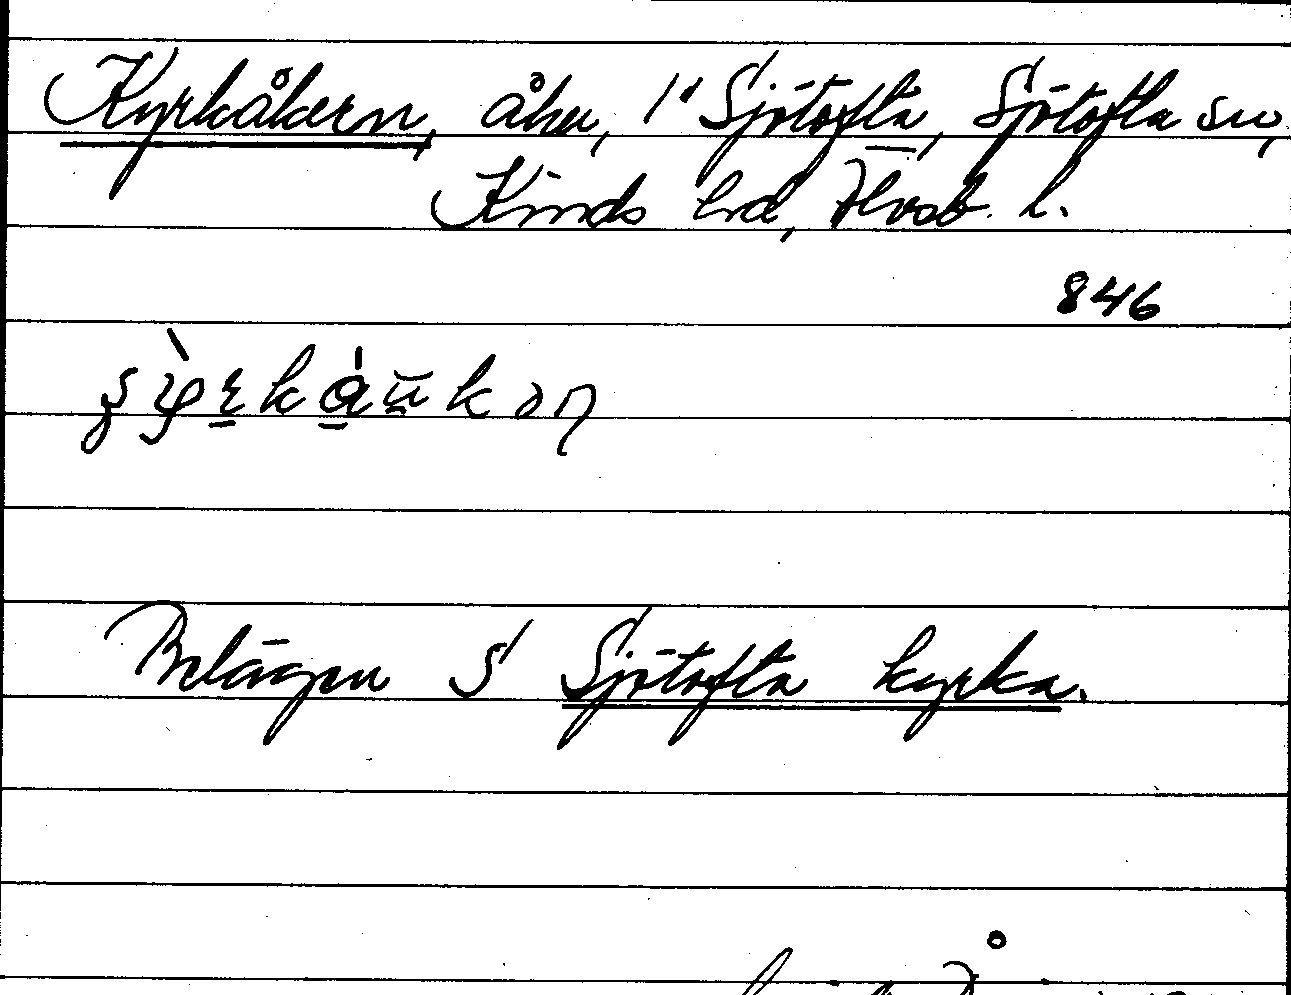 Kyrkåkern, åker, 1" Sjötofta, Sjötofta sn,
Kinds hd, Älvsb. l.
846
Belägen S Sjötofta kyrka.